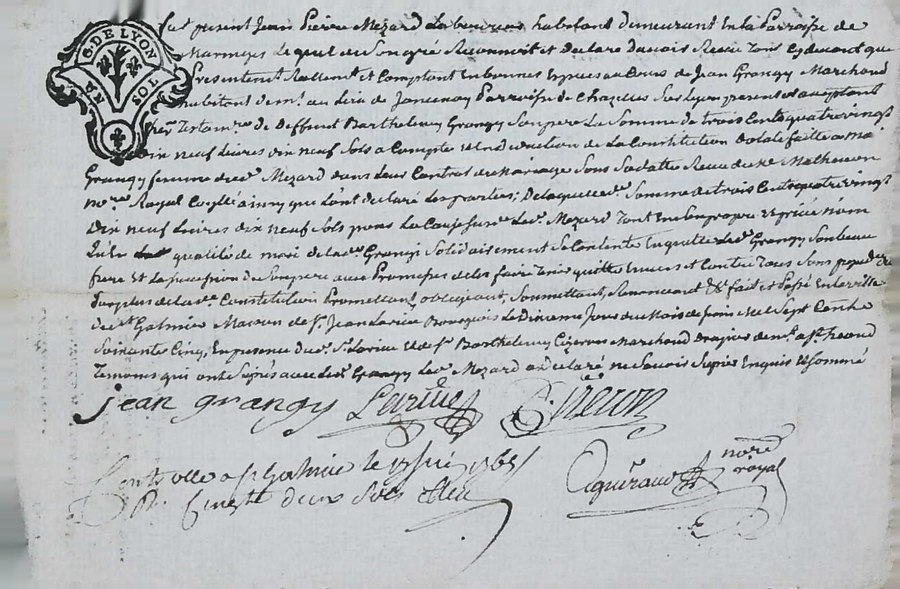 G. DE LYON
UN SOL
fut present Jean Pierre Mezard Laboureur habitant demeurant En la Parroisse de
Marringes Lequel de Son gré Reconnoit et Declare D'avoir Recu Tois Cy devant que
Presentement Reallement et Comptant En bonnes Especes au Cours de Jean Grangy Marchand
habitant dem.t au Lieu de Parroisse de Chazelles Sur Lyon present et acceptant
Testam.re de Deffunt Barthelemy Grangy Son pere La Somme de trois Cents quatre vingt
Dix neuf Livres dix neuf Sols a Compte et En deduction de La Constitution dotale faitte a
Grangy femme dud.t Mezard dans Leur Contrat de Mariage Sous Sa datte Recu de M.e Matheuon
no.re Royal ainsy que L'ont declaré Les parties; De laquelle d.e Somme de trois Cents quatre vingt
Dix neuf Livres dix neuf Sols pour La Cause Sus d.e Led.t Mezard Tant En Son propre et privé nom
qu'En qualité de mari de lad.e Grangy Solidairement Se Contente En quitte Led.t Grangy Son beau
frere Et La Succession de Son pere avec Promesse de Les faire Tenir quittes Envers et Contre Tous Sans prejudice
du Surplus de lad.e Constitution Promettant, obligeant, Soumettant, Renonceant &.a fait et Passé En la ville
de S.t Galmier Maison de S.r Jean Larive Bourgeois Le Dixieme Jour du Mois de Juin Mil Sept Cent
Soixante Cinq, En presence dud.t S.r Larive Et de S.r Barthelemy Marchand Drapier dem.t a S.t heand
Temoins qui ont Signés avec led.t Grangy Led.t Mezard a declaré ne Scavoir Signer Enquis Et Sommé
jean grangy Larive
Controllé a S.t Galmier le 1765
R. deux Sols
nore
royal